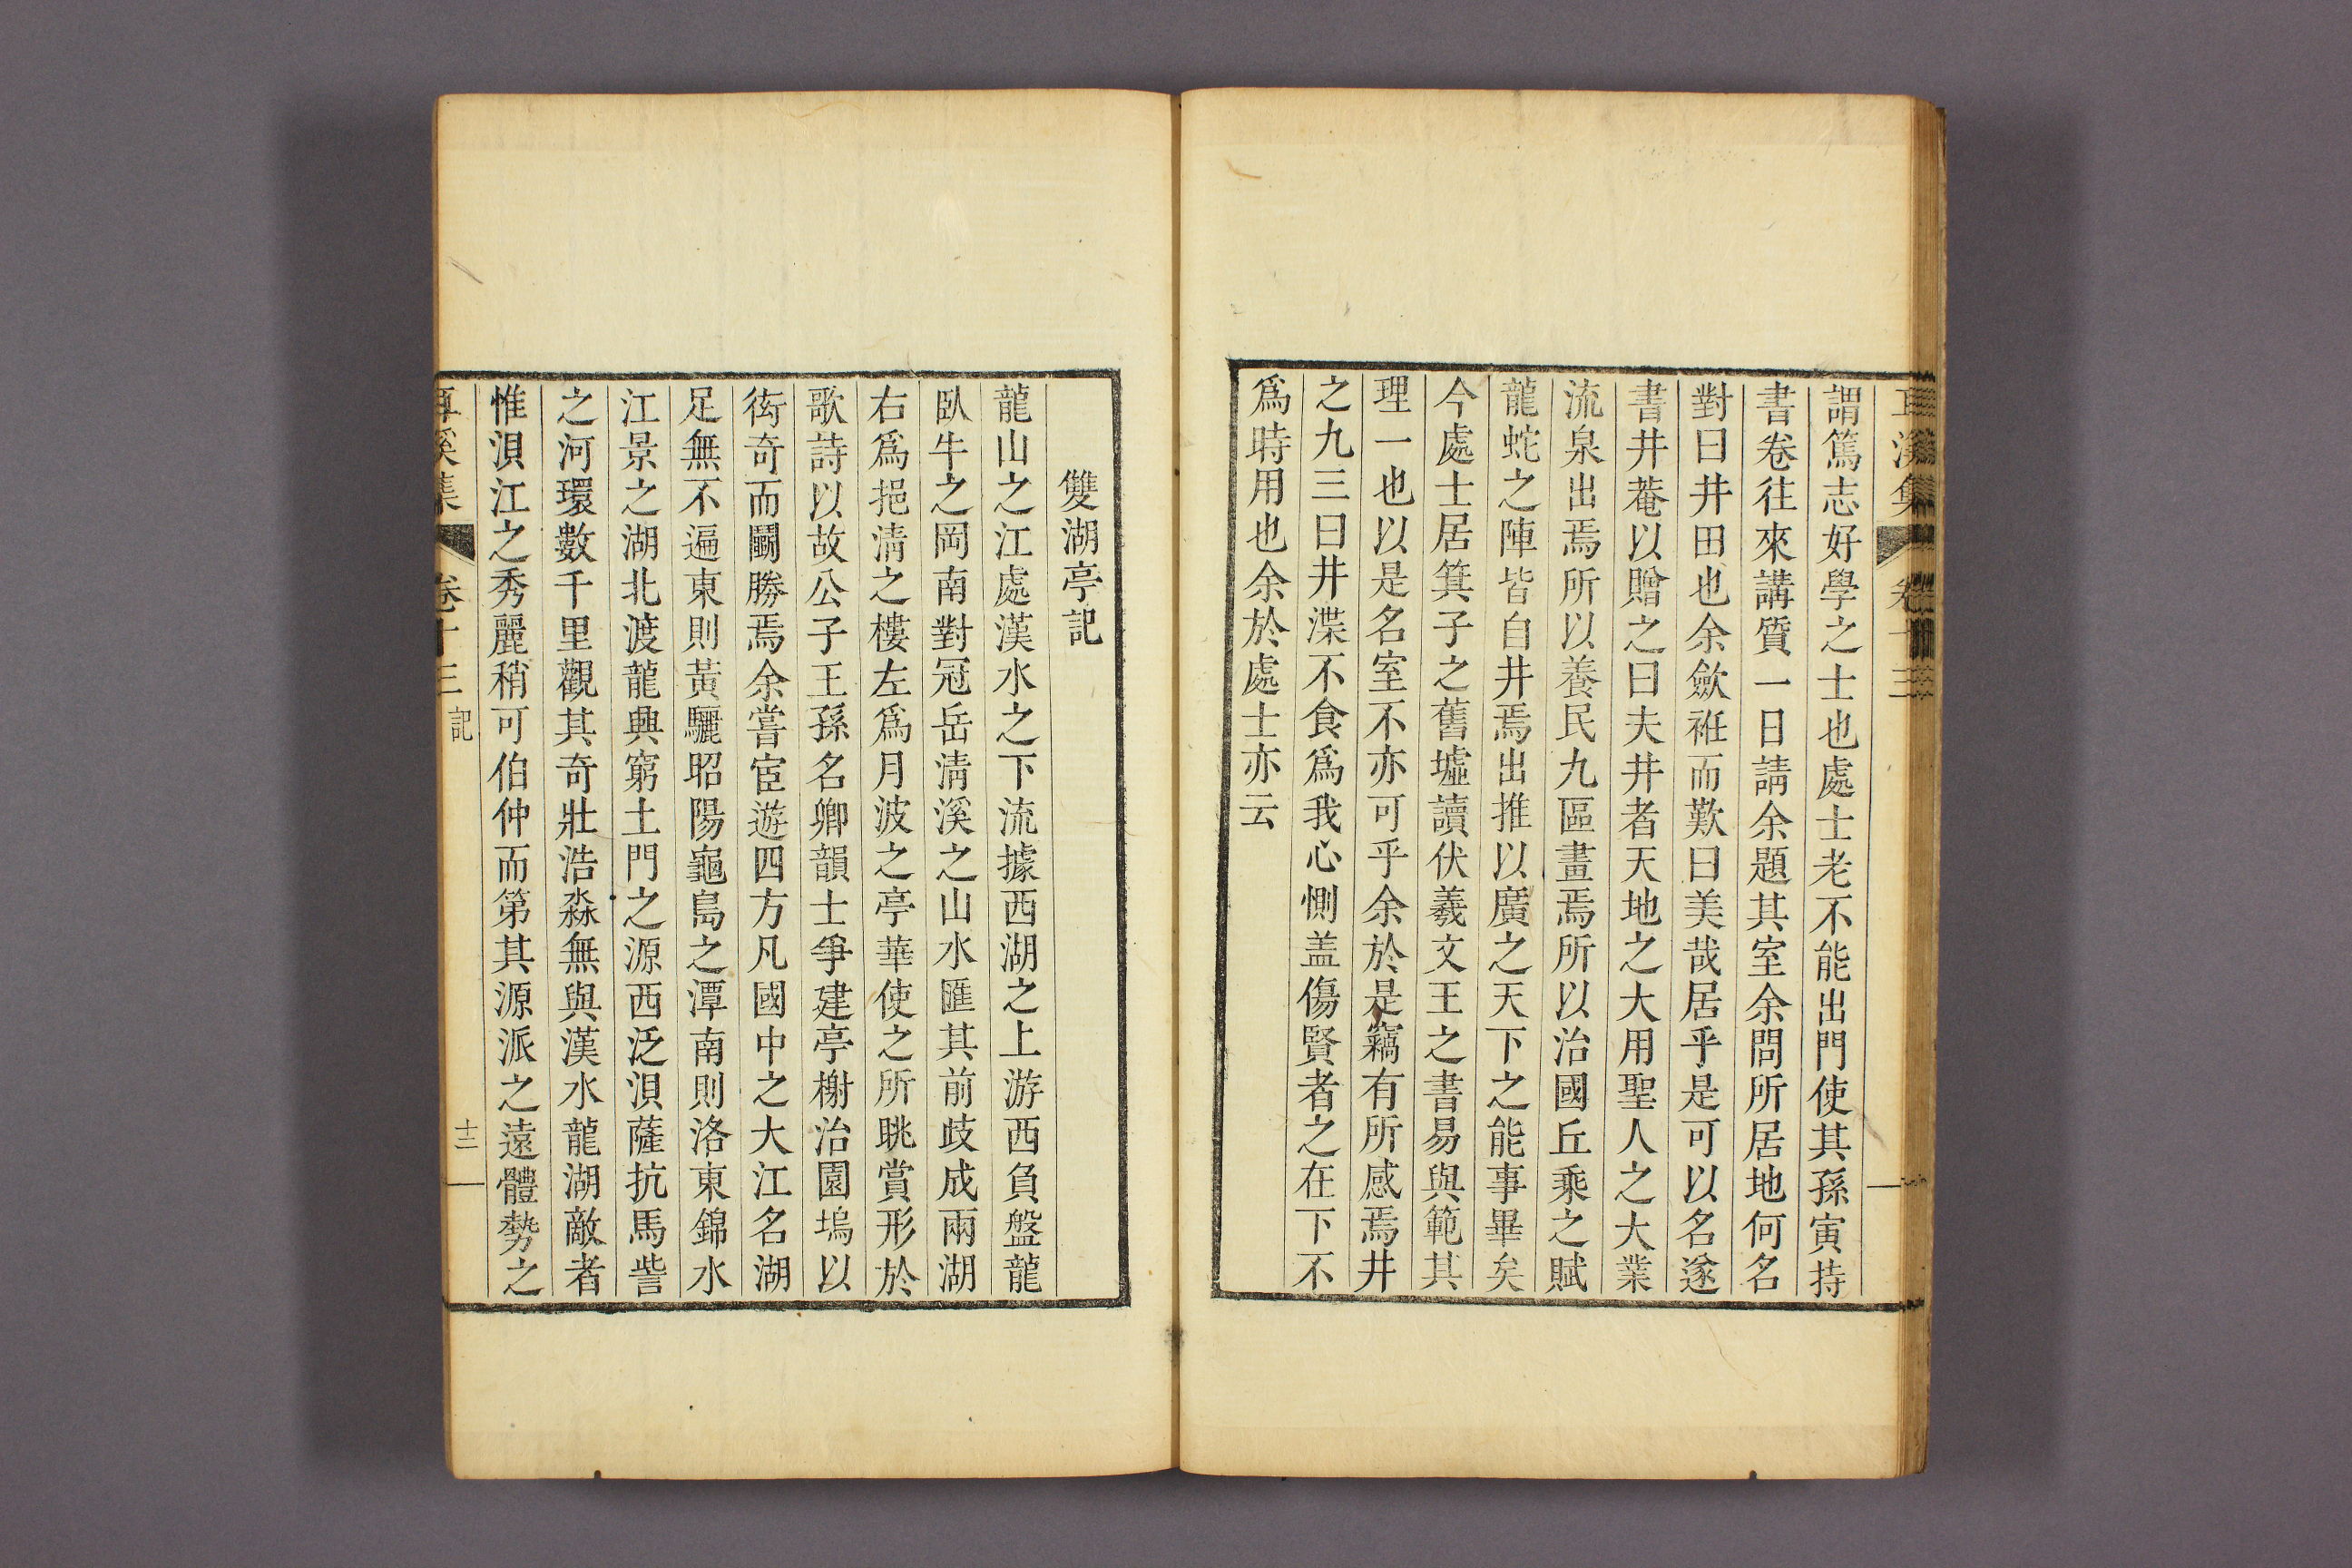 溪集
卷十三
謂篤志好學之士也處士老不能出門使其孫寅持
書卷往來講質一日請余題其室余問所居地何名
對曰井田也余歛袵而歎曰美哉居乎是可以名遂
書井菴以贈之曰夫井者天地之大用聖人之大業
流泉出焉所以養民九區畫焉所以治國丘乘之賦
龍蛇之陣皆自井焉出推以廣之天下之能事畢矣
今處士居箕子之舊墟讀伏羲文王之書易與範其
理一也以是名室不亦可乎余於是竊有所感焉井
之九三曰井渫不食爲我心惻盖傷賢者之在下不
爲時用也余於處士亦云
雙湖亭記
龍山之江處漢水之下流據西湖之上游西負盤龍
臥牛之岡南對冠岳淸溪之山水匯其前歧成兩湖
右爲挹淸之樓左爲月波之亭華使之所眺賞形於
歌詩以故公子王孫名卿韻士爭建亭榭治園塢以
衒奇而鬪勝焉余嘗宦遊四方凡國中之大江名湖
足無不遍東則黃驪昭陽龜島之潭南則洛東錦水
江景之湖北渡龍興窮土門之源西泛浿薩抗馬訾
之河環數千里觀其奇壯浩淼無與漢水龍湖敵者
惟浿江之秀麗稍可伯仲而第其源派之遠體勢之
溪集
卷十三
記
十二